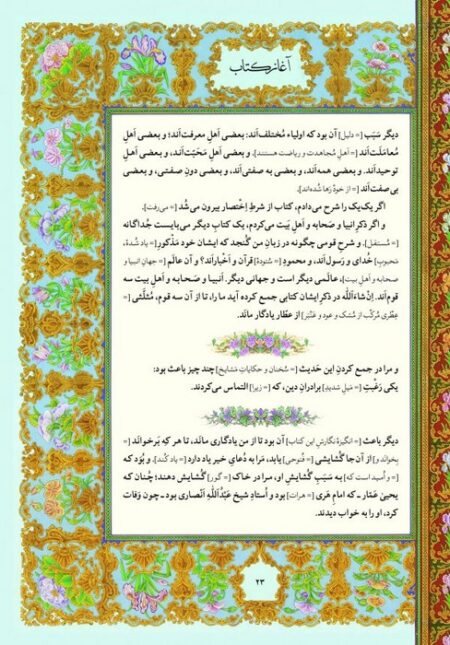 آغاز کتاب
دیگر سَبَب [= دلیل] آن بود که اولیاء مُختلف‌اَند: بعضی اَهلِ معرفت‌اَند؛ و بعضی اَهلِ
مُعامَلَت‌اَند [= اَهلِ مُجاهدت و ریاضت هستند]. و بعضی اَهلِ مَحَبّت‌اَند، و بعضی اَهلِ
توحیداَند. و بعضی همه‌اَند، و بعضی به صفتی‌اَند، و بعضی دونِ صفتی، و بعضی
بی‌صفت‌اَند [= از خودْ رَها شده‌اند].
اگر یک‌یک را شرح می‌دادم، کتاب از شرطِ اِختصار بیرون می‌شُد [= می‌رفت].
و اگر ذکرِ انبیا و صَحابه و اَهلِ بَیت می‌کردم، یک کتابِ دیگر می‌بایست جُداگانه
[= مُستقل]. و شرحِ قومی چگونه در زبانِ من گُنجد که ایشان خود مَذکورِ [= یاد شدهٔ،
مَحبوبِ] خُدای و رَسول‌اَند، و محمودِ [= ستودهٔ] قرآن و اَخباراَند؟ و آن عالَم [= جهانِ انبیا و
صحابه و اَهلِ بیت]، عالَمی دیگر است و جهانی دیگر. اَنبیا و صَحابه و اَهلِ بیت سه
قوم‌اَند. اِنْ‌شاءَاللّه در ذکرِ ایشان کتابی جمع کرده آید ما را، تا از آن سه قوم، مُثلَّثی [=
عِطری مُرکّب از مُشک و عود و عَنْبَر] از عطّار یادگار مانَد.
و مرا در جمع کردنِ این حَدیث [= سُخنان و حکایاتِ مَشایخ] چند چیز باعث بود:
یکی رَغْبَتِ [= مَیلِ شدیدِ] برادرانِ دین، که [= زیرا] التماس می‌کردند.
دیگر باعث [= انگیزهٔ نگارشِ این کتاب] آن بود تا از من یادگاری مانَد، تا هر کِه بَرخوانَد [=
بخوانَد و] از آن‌جا گُشایشی [= فُتوحی] یابد، مَرا به دُعایِ خیر یاد دارد [= یاد کُند]. و بُوَد که
[= و اُمید است که] به سَبَبِ گُشایشِ او، مرا در خاک [= گور] گُشایش دهند؛ چُنان که
یحییٰ عَمّار ـ که امامِ هَری [= هَرات] بود و اُستادِ شیخ عَبدُاللّهِ اَنْصاری بود ـ چون وَفات
کرد، او را به خواب دیدند.
۲۳